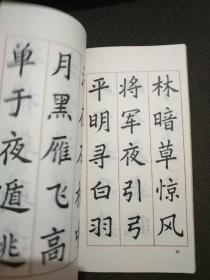 林暗草惊风
将军夜引弓
平明寻白羽
月黑雁飞高
单于夜遁逃